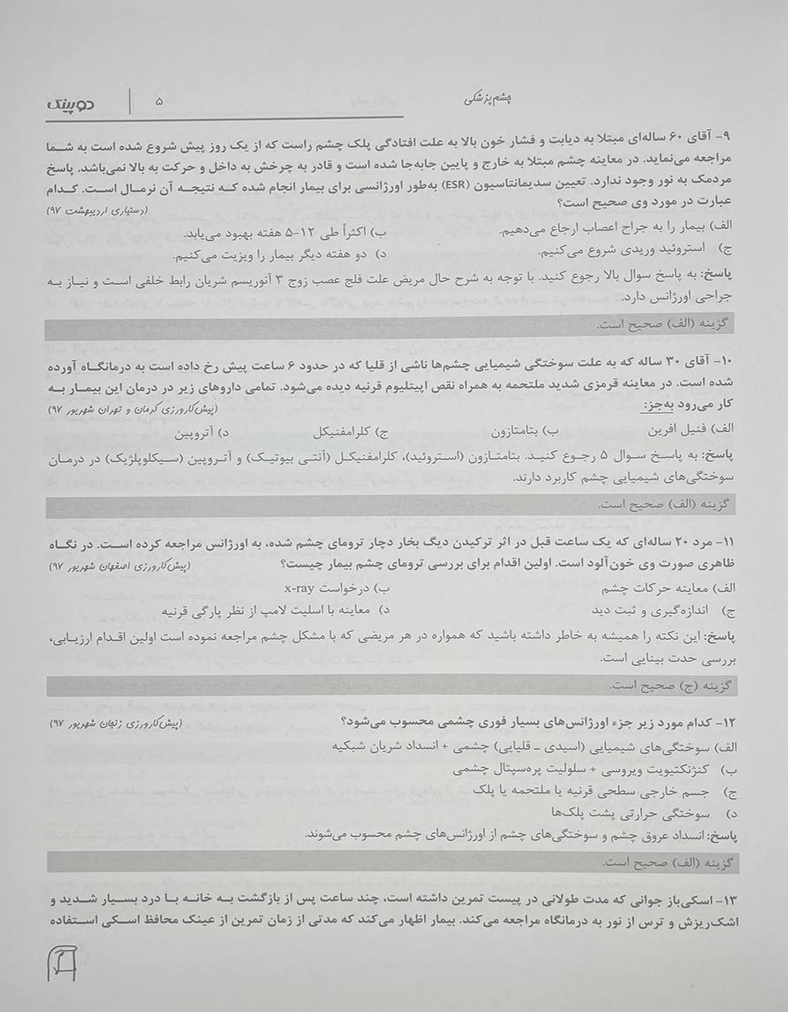 چشم‌پزشکی
۵
دوپینگ
۹- آقای ۶۰ ساله‌ای مبتلا به دیابت و فشار خون بالا به علت افتادگی پلک چشم راست که از یک روز پیش شروع شده است به شما
مراجعه می‌نماید. در معاینه چشم مبتلا به خارج و پایین جابه‌جا شده است و قادر به چرخش به داخل و حرکت به بالا نمی‌باشد. پاسخ
مردمک به نور وجود ندارد. تعیین سدیمانتاسیون (ESR) به‌طور اورژانسی برای بیمار انجام شده که نتیجه آن نرمال است. کدام
عبارت در مورد وی صحیح است؟ (دستیاری اردیبهشت ۹۷)
الف) بیمار را به جراح اعصاب ارجاع می‌دهیم. ب) اکثراً طی ۱۲-۵ هفته بهبود می‌یابد.
ج) استروئید وریدی شروع می‌کنیم. د) دو هفته دیگر بیمار را ویزیت می‌کنیم.
پاسخ: به پاسخ سوال بالا رجوع کنید. با توجه به شرح حال مریض علت فلج عصب زوج ۳ آنوریسم شریان رابط خلفی است و نیاز به
جراحی اورژانس دارد.
گزینه (الف) صحیح است.
۱۰- آقای ۳۰ ساله که به علت سوختگی شیمیایی چشم‌ها ناشی از قلیا که در حدود ۶ ساعت پیش رخ داده است به درمانگاه آورده
شده است. در معاینه قرمزی شدید ملتحمه به همراه نقص اپیتلیوم قرنیه دیده می‌شود. تمامی داروهای زیر در درمان این بیمار به
کار می‌رود به‌جز: (پیش‌کارورزی کرمان و تهران شهریور ۹۷)
الف) فنیل افرین ب) بتامتازون ج) کلرامفنیکل د) آتروپین
پاسخ: به پاسخ سوال ۵ رجوع کنید. بتامتازون (استروئید)، کلرامفنیکل (آنتی بیوتیک) و آتروپین (سیکلوپلژیک) در درمان
سوختگی‌های شیمیایی چشم کاربرد دارند.
گزینه (الف) صحیح است.
۱۱- مرد ۲۰ ساله‌ای که یک ساعت قبل در اثر ترکیدن دیگ بخار دچار ترومای چشم شده، به اورژانس مراجعه کرده است. در نگاه
ظاهری صورت وی خون‌آلود است. اولین اقدام برای بررسی ترومای چشم بیمار چیست؟ (پیش‌کارورزی اصفهان شهریور ۹۷)
الف) معاینه حرکات چشم ب) درخواست x-ray
ج) اندازه‌گیری و ثبت دید د) معاینه با اسلیت لامپ از نظر پارگی قرنیه
پاسخ: این نکته را همیشه به خاطر داشته باشید که همواره در هر مریضی که با مشکل چشم مراجعه نموده است اولین اقدام ارزیابی،
بررسی حدت بینایی است.
گزینه (ج) صحیح است.
۱۲- کدام مورد زیر جزء اورژانس‌های بسیار فوری چشمی محسوب می‌شود؟ (پیش‌کارورزی زنجان شهریور ۹۷)
الف) سوختگی‌های شیمیایی (اسیدی ـ قلیایی) چشمی + انسداد شریان شبکیه
ب) کنژنکتیویت ویروسی + سلولیت پره‌سپتال چشمی
ج) جسم خارجی سطحی قرنیه یا ملتحمه یا پلک
د) سوختگی حرارتی پشت پلک‌ها
پاسخ: انسداد عروق چشم و سوختگی‌های چشم از اورژانس‌های چشم محسوب می‌شوند.
گزینه (الف) صحیح است.
۱۳- اسکی‌باز جوانی که مدت طولانی در پیست تمرین داشته است، چند ساعت پس از بازگشت به خانه با درد بسیار شدید و
اشک‌ریزش و ترس از نور به درمانگاه مراجعه می‌کند. بیمار اظهار می‌کند که مدتی از زمان تمرین از عینک محافظ اسکی استفاده